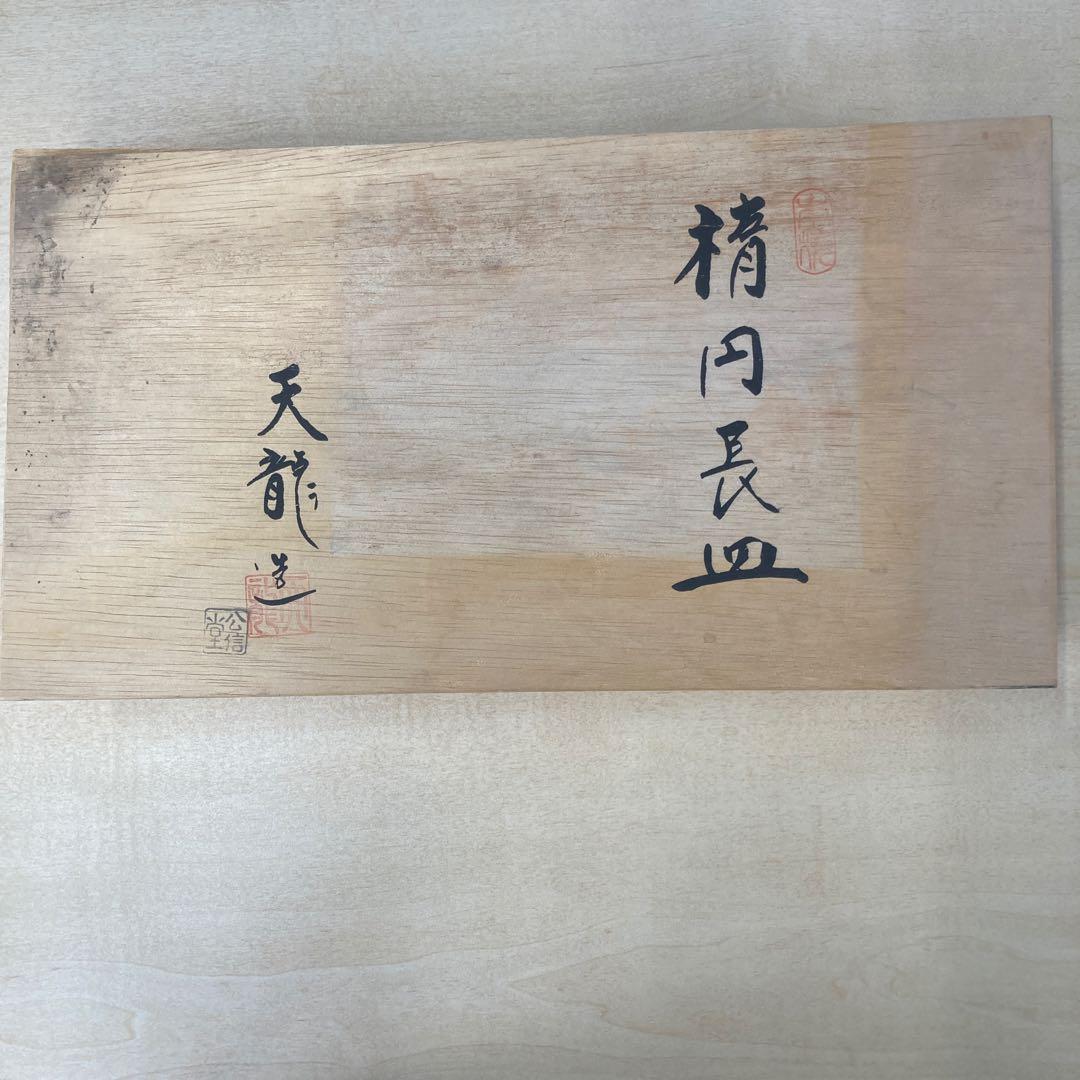 楕円長皿
天龍造
公信堂